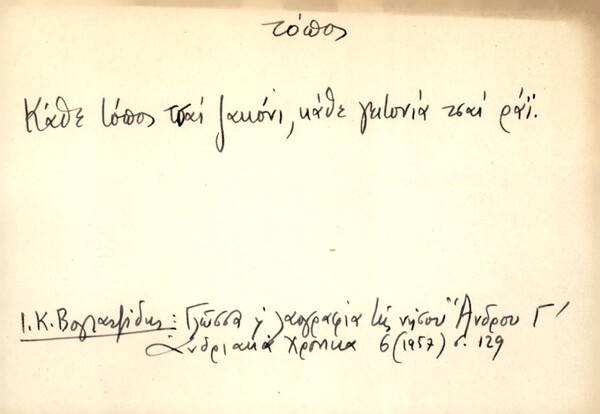 τόπος
Κάθε τόπος τσαί ζακόνι, κάθε γειτονιά τσαί ράϊ.
Ι. Κ. Βογιατζίδης: Γλῶσσα κ λαογραφία τῆς νήσου Ἄνδρου Γ'
Ἀνδριακά Χρονικά 6 (1957) σ. 129